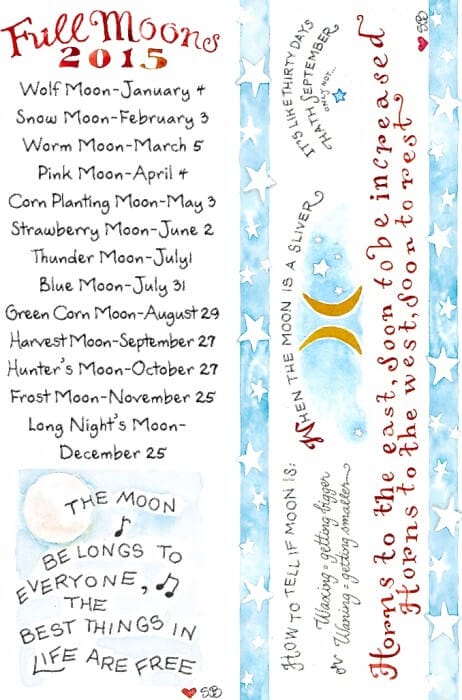 Full Moons
2015
Wolf Moon-January 4
Snow Moon-February 3
Worm Moon-March 5
Pink Moon-April 4
Corn Planting Moon-May 3
Strawberry Moon-June 2
Thunder Moon-July1
Blue Moon-July 31
Green Corn Moon-August 29
Harvest Moon-September 27
Hunter's Moon-October 27
Frost Moon-November 25
Long Night's Moon-
December 25
THE MOON
BELONGS TO
EVERYONE,
THE
BEST THINGS IN
LIFE ARE FREE
SB
HOW TO TELL IF MOON IS:
Waxing = getting bigger
or Waning = getting smaller
WHEN THE MOON IS A SLIVER
IT'S LIKE THIRTY DAYS
HATH SEPTEMBER
ONLY NOT...
Horns to the east, soon to be increased
Horns to the west, soon to rest
SB